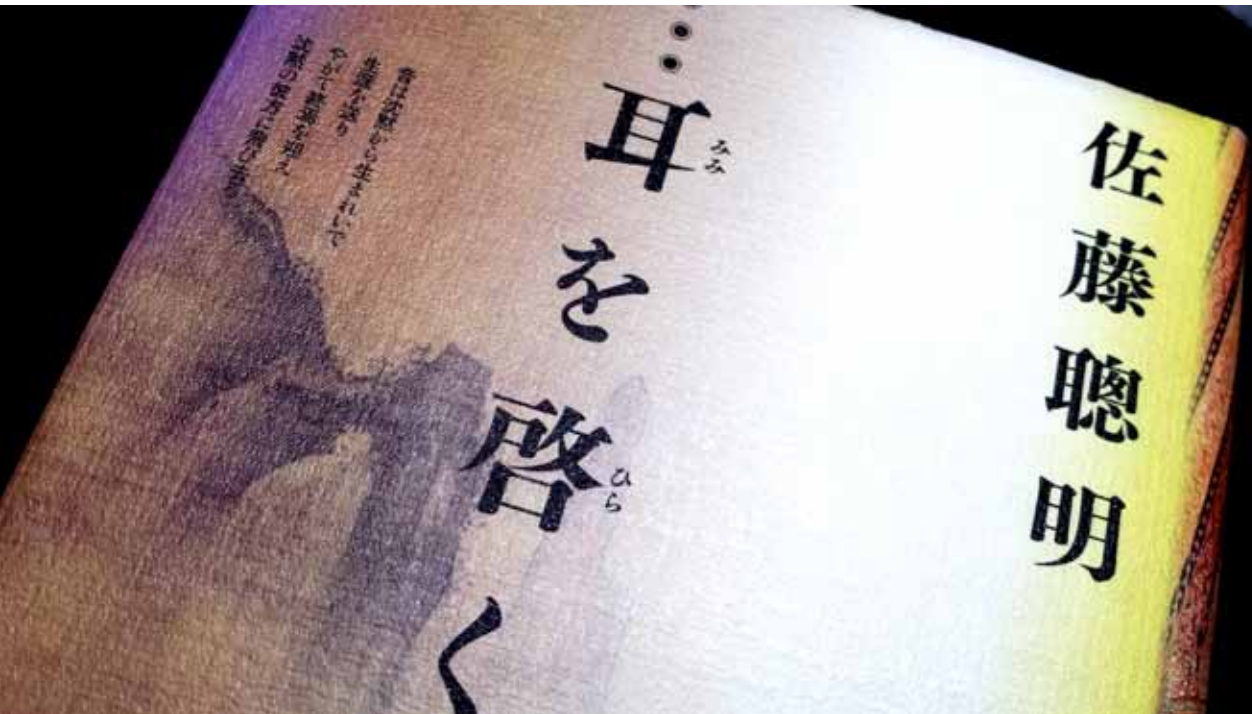 佐藤聰明
耳を啓く
みみ
ひら
音は沈黙から生まれいで
生涯を送り
やがて終焉を迎え
沈黙の彼方に飛び去る